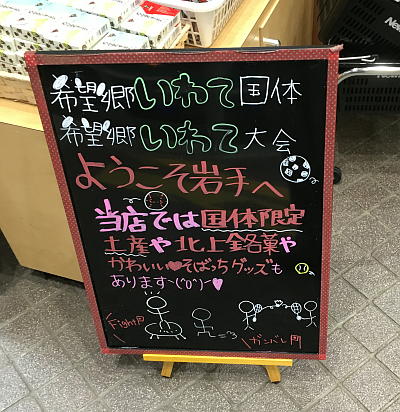 希望郷いわて国体
希望郷いわて大会
ようこそ岩手へ
当店では国体限定
土産や北上銘菓や
かわいい♥そばっちグッズも
あります~(^0^)-♥
Fight
ガンバレ